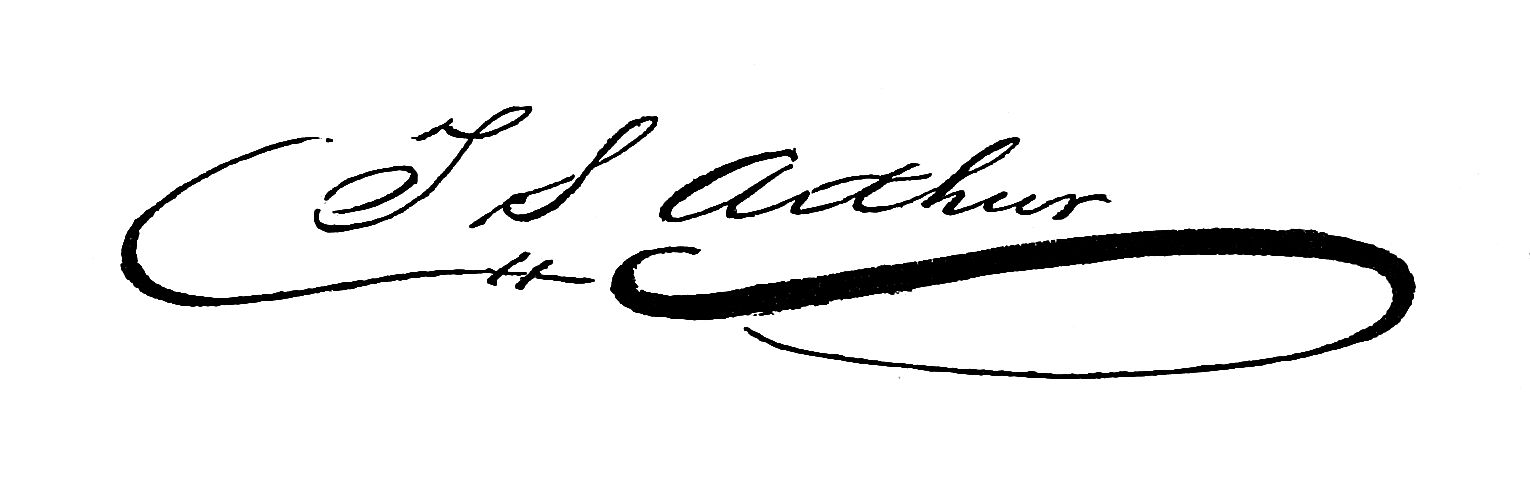 T S Arthur